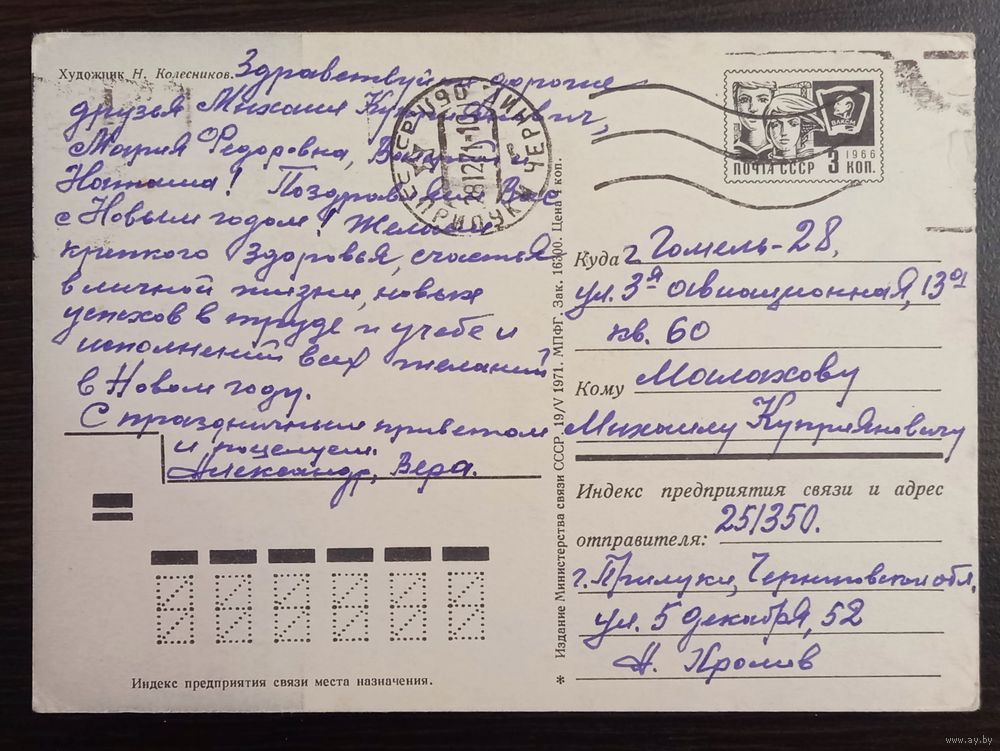 Художник Н. Колесников.
Здравствуйте дорогие
друзья Михаил Куприянович,
Мария Федоровна, и
Наташа! Поздравляем Вас
с Новым годом! Желаем
крепкого здоровья, счастья
в личной жизни, новых
успехов в труде и учебе и
исполнений всех желаний
в Новом году.
С праздничным приветом
и поцелуем.
Александр, Вера.
Индекс предприятия связи места назначения.
28 12 71-10
ПРИЛУКИ ЧЕРНИГ. ОБЛ.
Издание Министерства связи СССР. 19/V 1971. МПФГ. Зак. 16300. Цена 4 коп.
ВЛКСМ
1966
ПОЧТА СССР 3 КОП.
Куда г. Гомель-28,
ул. 3я авиационная, 13а
кв. 60
Кому Малахову
Михаилу Куприяновичу
Индекс предприятия связи и адрес
отправителя: 251350.
г. Прилуки, Черниговской обл.
ул. 5 декабря, 52
А. Кролив
www.ay.by